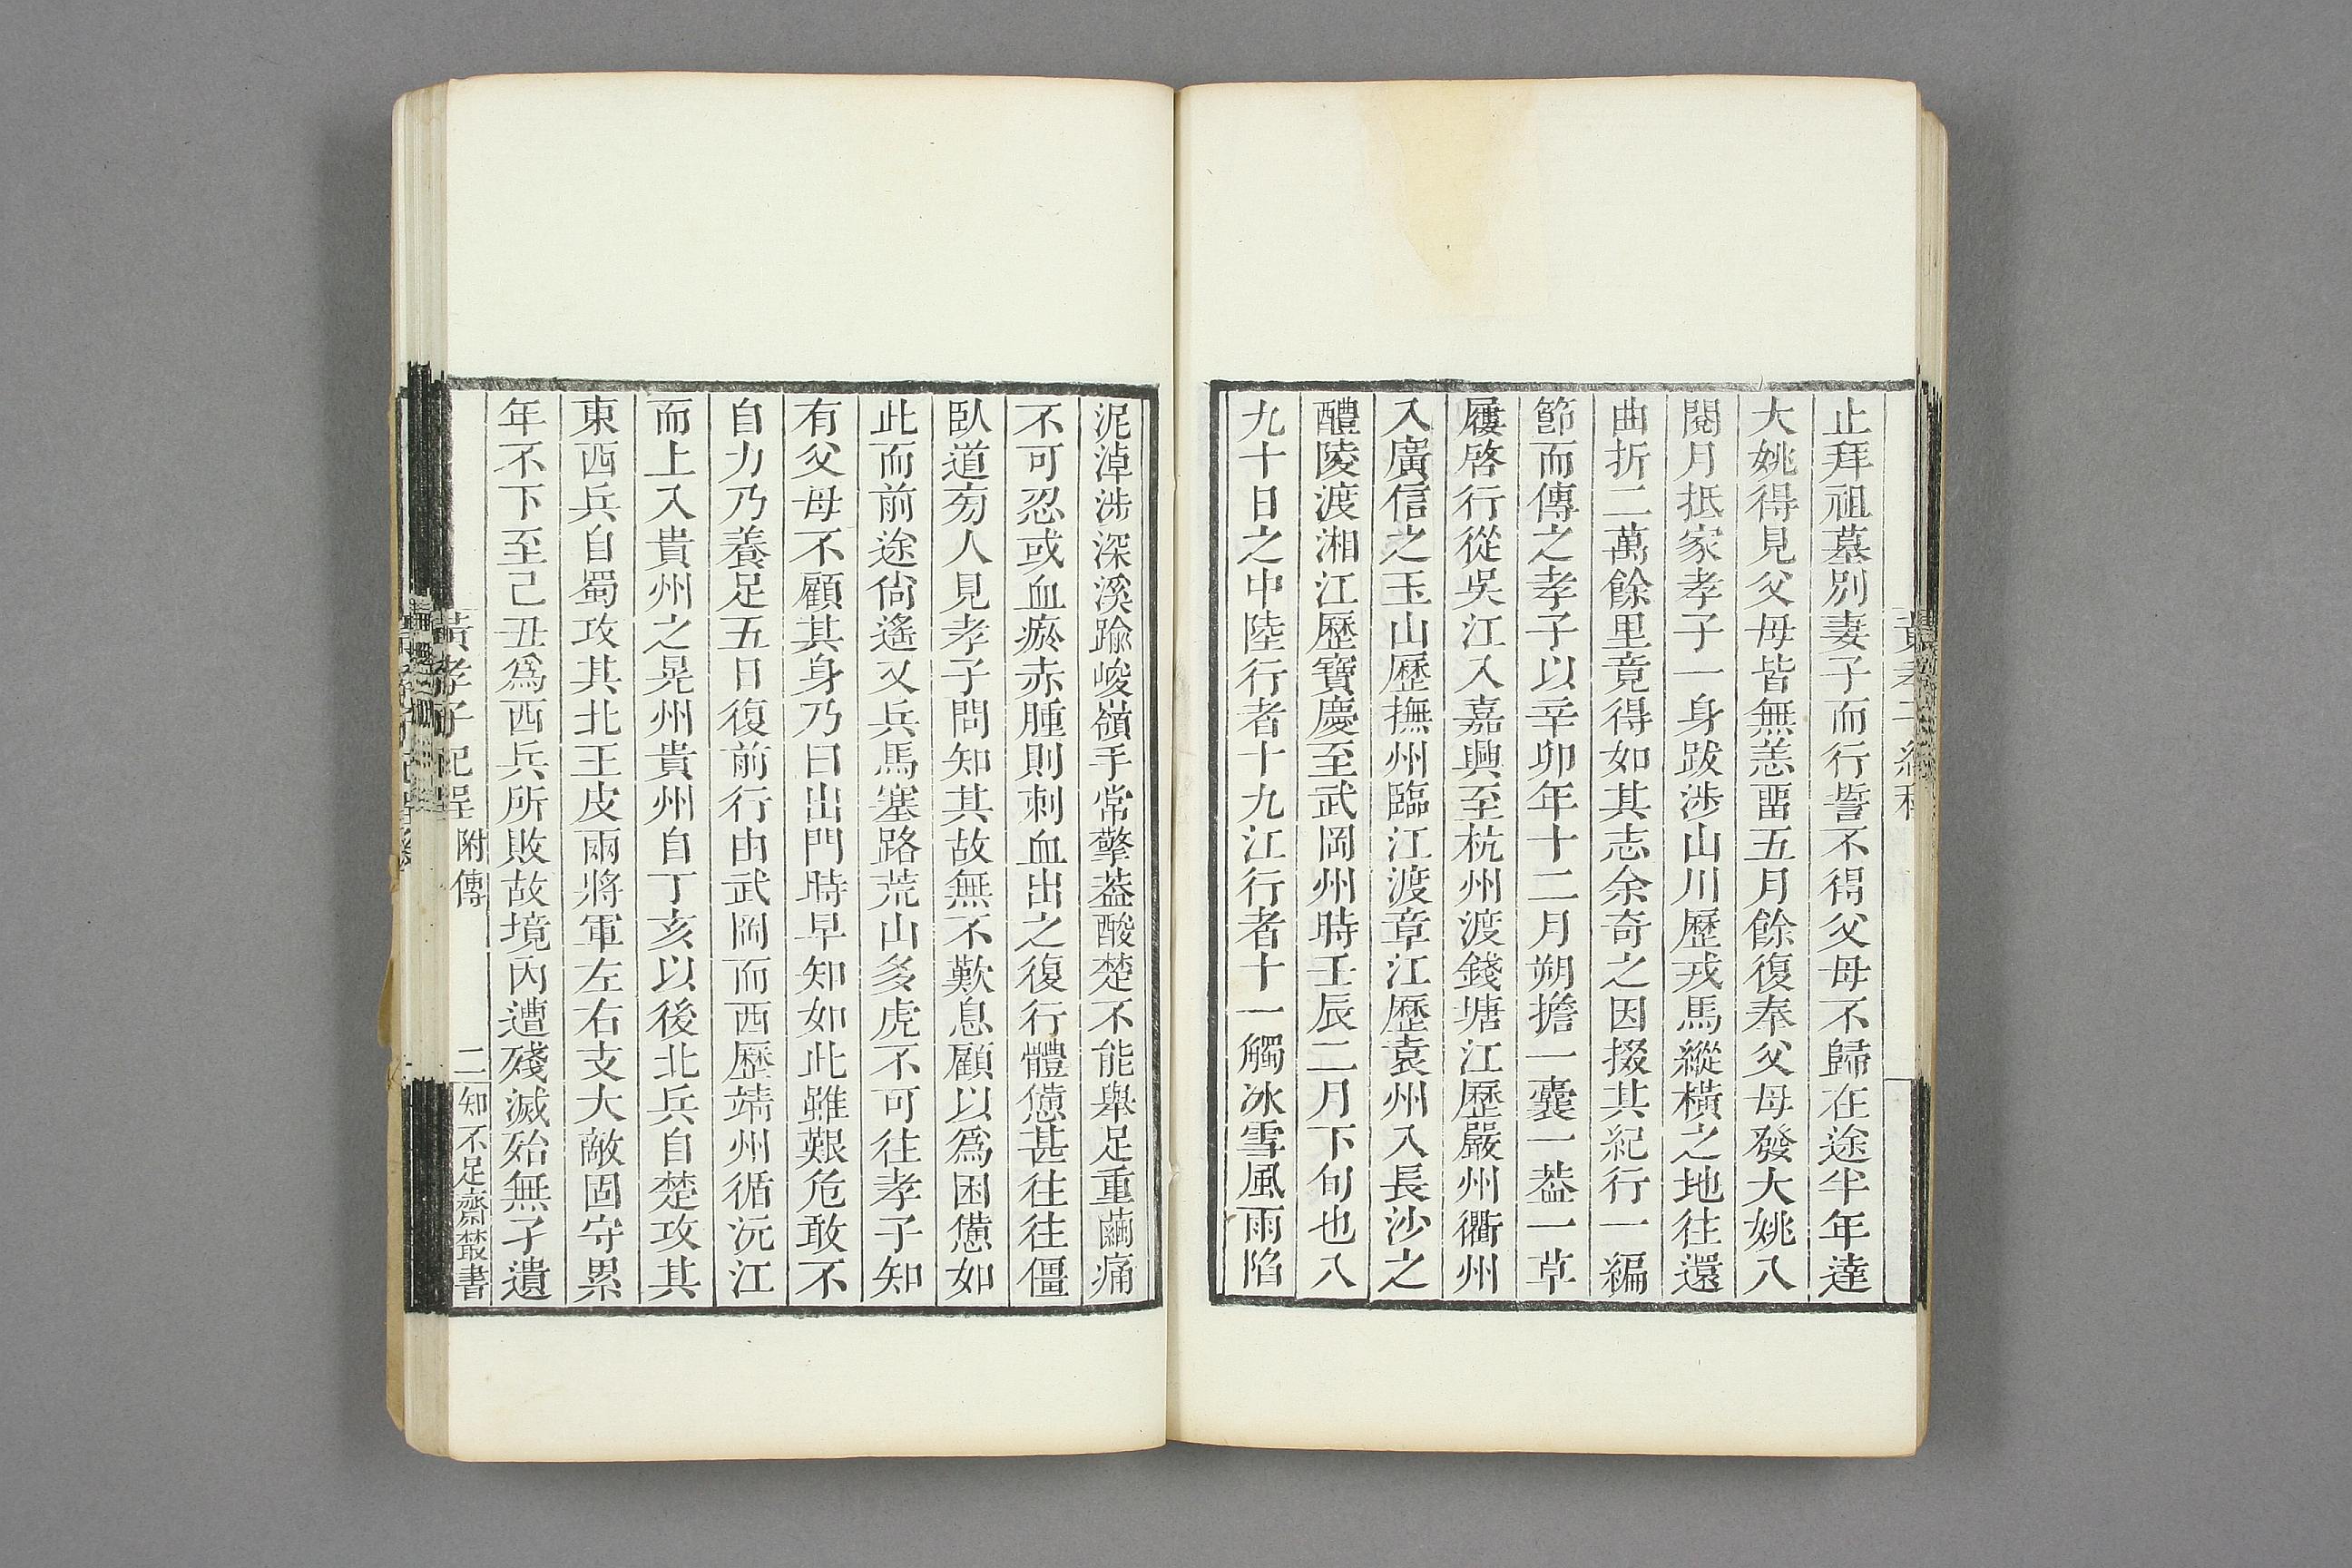 止拜祖墓別妻子而行誓不得父母不歸在途半年達
大姚得見父母皆無恙畱五月餘復奉父母發大姚八
閱月抵家孝子一身跋涉山川歷戎馬縱橫之地往還
曲折二萬餘里竟得如其志余奇之因掇其紀行一編
節而傳之孝子以辛卯年十二月朔擔一囊一葢一草
屨啓行從吳江入嘉興至杭州渡錢塘江歷嚴州衢州
入廣信之玉山歷撫州臨江渡章江歷袁州入長沙之
醴陵渡湘江歷寶慶至武岡州時壬辰二月下旬也八
九十日之中陸行者十九江行者十一觸冰雪風雨陷
泥淖涉深溪踰峻嶺手常擎葢酸楚不能舉足重繭痛
不可忍或血瘀赤腫則刺血出之復行體憊甚往往僵
臥道旁人見孝子問知其故無不歎息顧以爲困憊如
此而前途尙遙又兵馬塞路荒山多虎不可往孝子知
有父母不顧其身乃曰出門時早知如此雖艱危敢不
自力乃養足五日復前行由武岡而西歷靖州循沅江
而上入貴州之晃州貴州自丁亥以後北兵自楚攻其
東西兵自蜀攻其北王皮兩將軍左右支大敵固守累
年不下至己丑爲西兵所敗故境內遭殘滅殆無孑遺
黃孝子紀程 附傳 二 知不足齋叢書